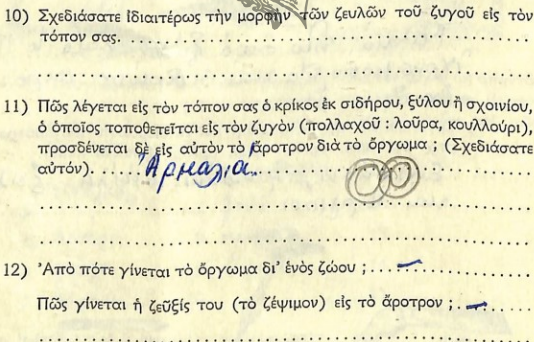 10) Σχεδιάσατε ἰδιαιτέρως τὴν μορφὴν τῶν ζευλῶν τοῦ ζυγοῦ εἰς τὸν
τόπον σας.
11) Πῶς λέγεται εἰς τὸν τόπον σας ὁ κρίκος ἐκ σιδήρου, ξύλου ἢ σχοινίου,
ὁ ὁποῖος τοποθετεῖται εἰς τὸν ζυγὸν (πολλαχοῦ : λοῦρα, κουλλούρι),
προσδένεται δὲ εἰς αὐτὸν τὸ ἄροτρον διὰ τὸ ὄργωμα ; (Σχεδιάσατε
αὐτόν).
12) Ἀπὸ πότε γίνεται τὸ ὄργωμα δι' ἑνὸς ζώου ; —
Πῶς γίνεται ἡ ζεῦξίς του (τὸ ζέψιμον) εἰς τὸ ἄροτρον ; —